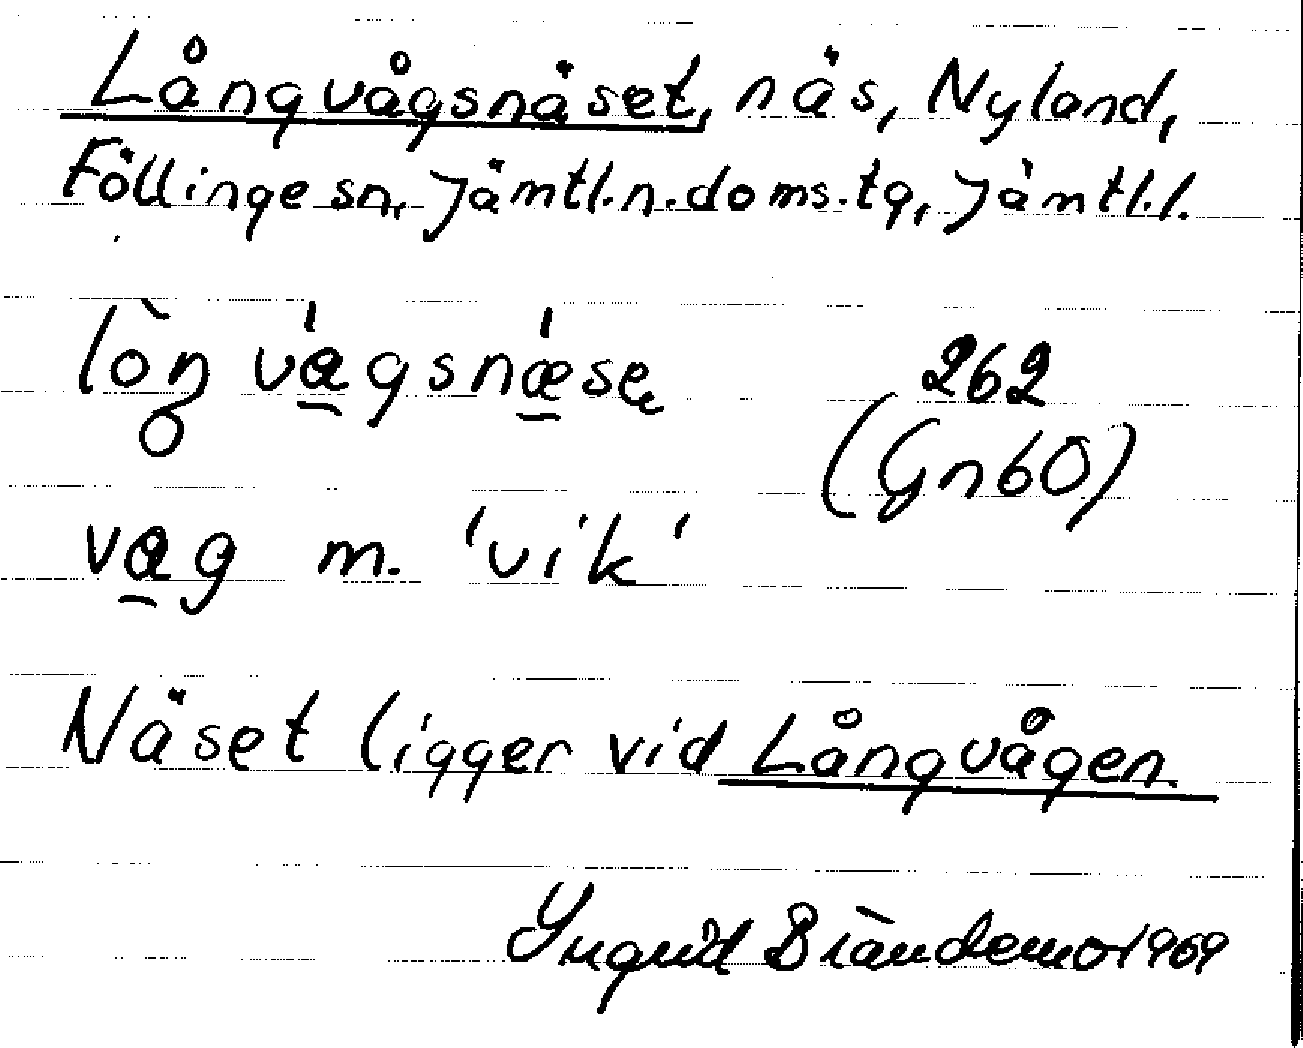 Långvågsnäset, näs, Nyland,
Föllinge sn, Jämtl.n.doms.tg, Jämtl.l.
lòŋ va̱̍gsnæ̱̍se 262
(Gn60)
va̱g m. 'vik'
Näset ligger vid Långvågen.
Yngvild Brändemo 1969